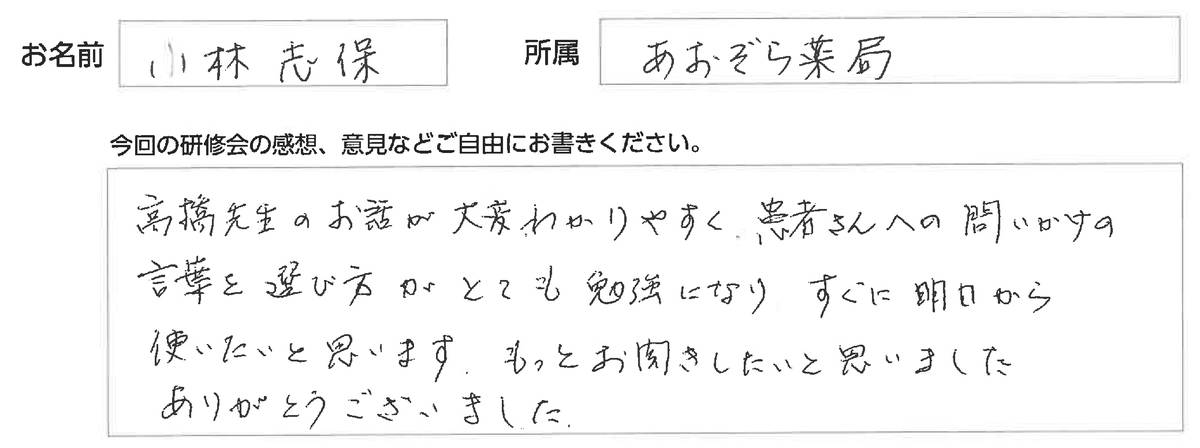 お名前 小林志保 所属 あおぞら薬局
今回の研修会の感想、意見などご自由にお書きください。
高橋先生のお話が大変わかりやすく、患者さんへの問いかけの
言葉を選び方がとても勉強になり すぐに明日から
使いたいと思います。もっとお聞きしたいと思いました
ありがとうございました。